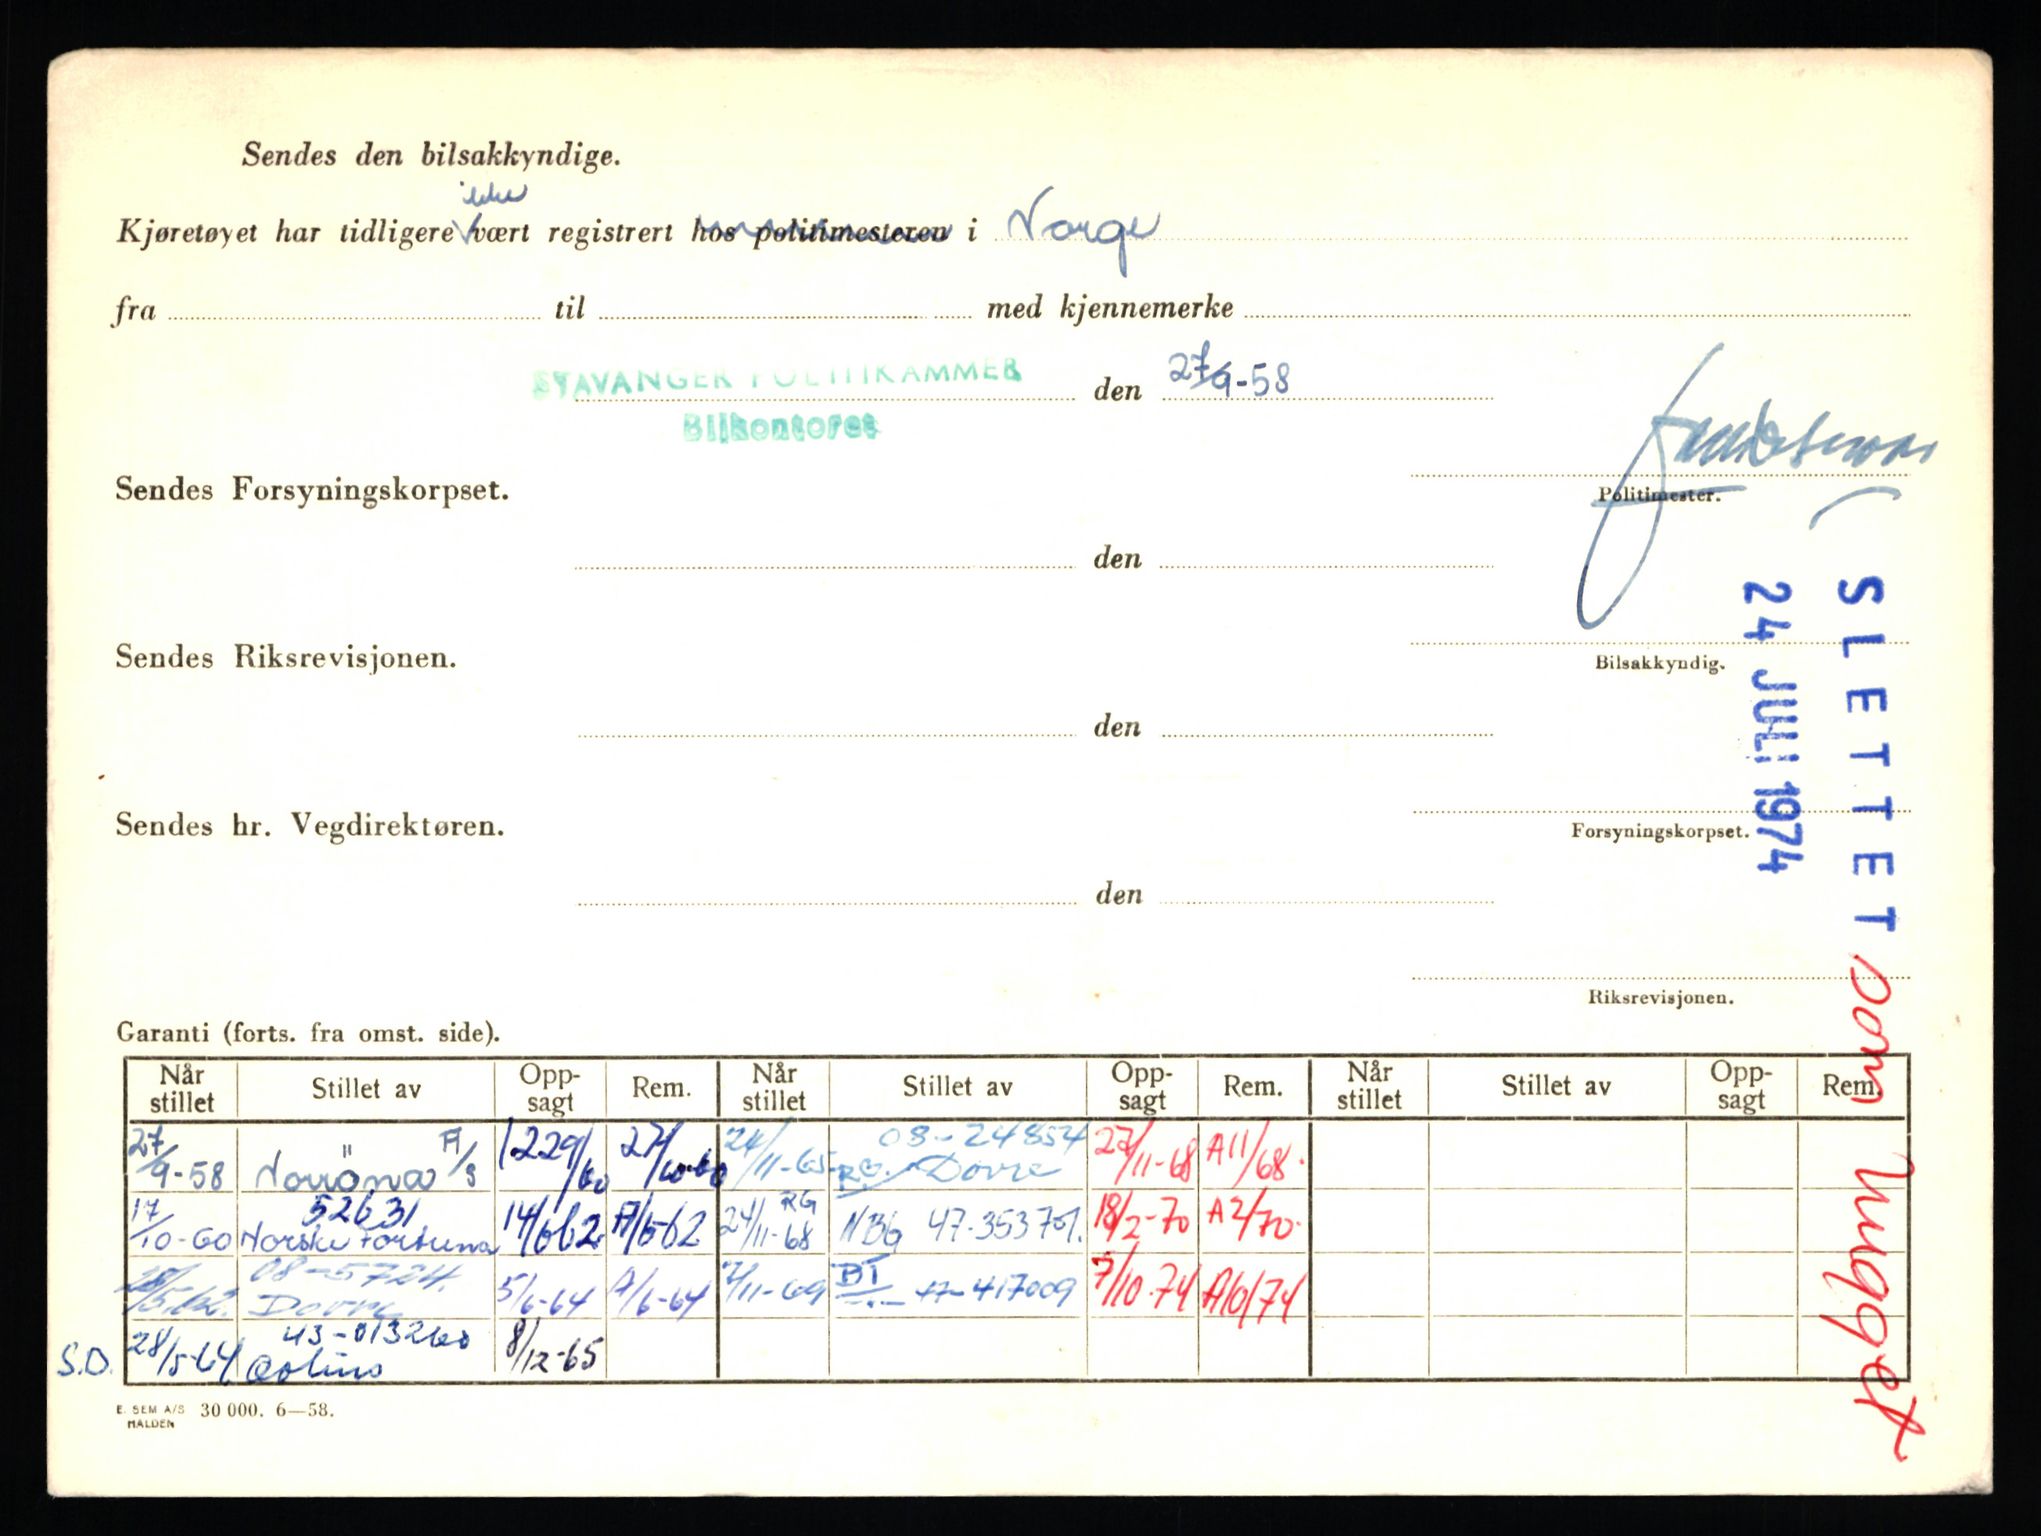 Sendes den bilsakkyndige.
ikke
Kjøretøyet har tidligere vært registrert hos politimesteren i Norge
fra til med kjennemerke
STAVANGER POLITIKAMMER den 27/9-58
Bilkontoret
Sendes Forsyningskorpset.
Politimester.
den
Sendes Riksrevisjonen.
Bilsakkyndig.
den
Sendes hr. Vegdirektøren.
Forsyningskorpset.
den
Riksrevisjonen.
SLETTET som hugget
24 JULI 1974
Garanti (forts. fra omst. side).
Når stillet Stillet av Opp-sagt Rem. Når stillet Stillet av Opp-sagt Rem. Når stillet Stillet av Opp-sagt Rem.
27/9-58 " Norröna A/S 27/10-60 24/11-65 08-24854 Dovre 27/11-68 A11/68.
17/10-60 52631 Norske Fortuna 14/6 62 24/11-68 RG NBG 47-353701. 18/2-70 A2/70.
08-5724. Dovre 5/6-64 /6-64 /11-69 BT 17-417009 7/10.74 A10/74
S.D. 28/5-64 43-013260 8/12-65
E. SEM A/S 30 000. 6—58.
HALDEN